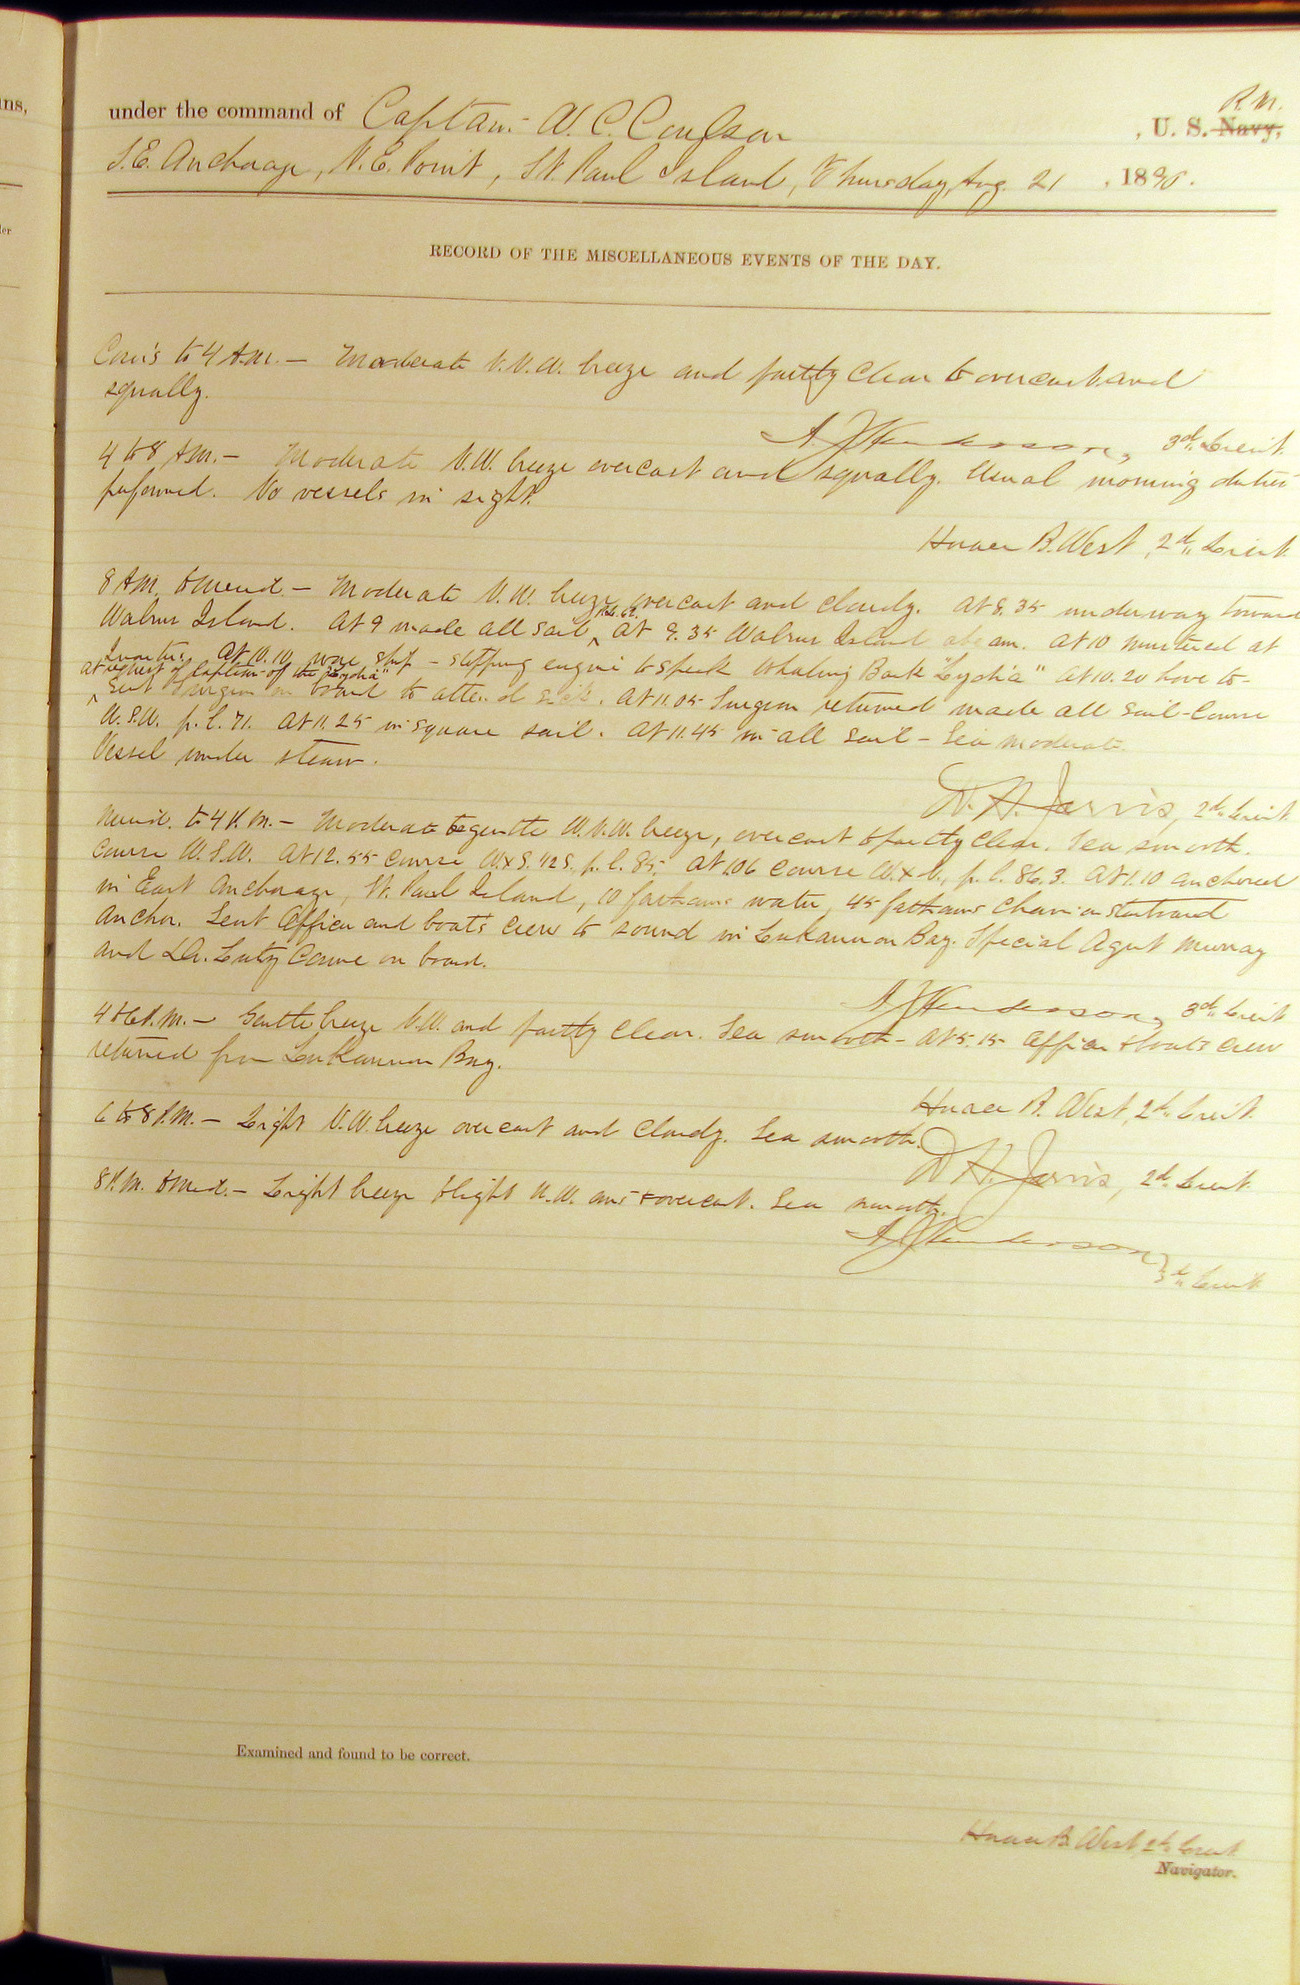 ins,
ler
R.M.
under the command of Captain W. C. Coulson, U. S. Navy,
S.E. Anchorage, N.E. Point, St. Paul Island, Thursday, Aug. 21, 1890.
RECORD OF THE MISCELLANEOUS EVENTS OF THE DAY.
Com's to 4 A.M. — Moderate N.N.W. breeze and partly clear to overcast and
squally.
A. J. Henderson, 3d Lieut.
4 to 8 A.M. — Moderate N.W. breeze overcast and squally. Usual morning duties
performed. No vessels in sight.
Horace B. West, 2d Lieut.
8 A.M. to merid. — Moderate N.W. breeze, overcast and cloudy. At 8.35 underway toward
Walrus Island. At 9 made all sail, At 9.35 Walrus Island abeam. At 10 mustered at
Quarters. At 10.10 wore ship — stopping engine to speak Whaling Bark "Lydia" At 10.20 hove to —
at request of Captain of the "Lydia"
Sent Surgeon on board to attend sick. At 11.05 Surgeon returned made all sail — Course
W.S.W. p.l. 71. At 11.25 in square sail. At 11.45 in all sail — Sea moderate.
Vessel under steam.
D. H. Jarvis, 2d Lieut.
Merid. to 4 P.M. — Moderate to gentle W.N.W. breeze, overcast to partly clear. Sea smooth.
Course W.S.W. At 12.55 course W.x S. 1/2 S. p.l. 85. At 1.06 course W.x N., p.l. 86.3. At 1.10 anchored
in East Anchorage, St. Paul Island, 10 fathoms water, 45 fathoms chain on starboard
anchor. Sent Officer and boat's crew to sound in Lukannon Bay. Special Agent Murray
and Dr. Lutz came on board.
A. J. Henderson, 3d Lieut.
4 to 6 P.M. — Gentle breeze N.W. and partly clear. Sea smooth — At 5.15 Officer & boat's crew
returned from Lukannon Bay.
Horace B. West, 2d Lieut.
6 to 8 P.M. — Light N.W. breeze overcast and cloudy. Sea smooth.
D. H. Jarvis, 2d Lieut.
8 P.M. to Mid. — Light breeze to light N.W. airs & overcast. Sea smooth.
A. J. Henderson,
3d Lieut.
Examined and found to be correct.
Horace B. West, 2d Lieut.
Navigator.